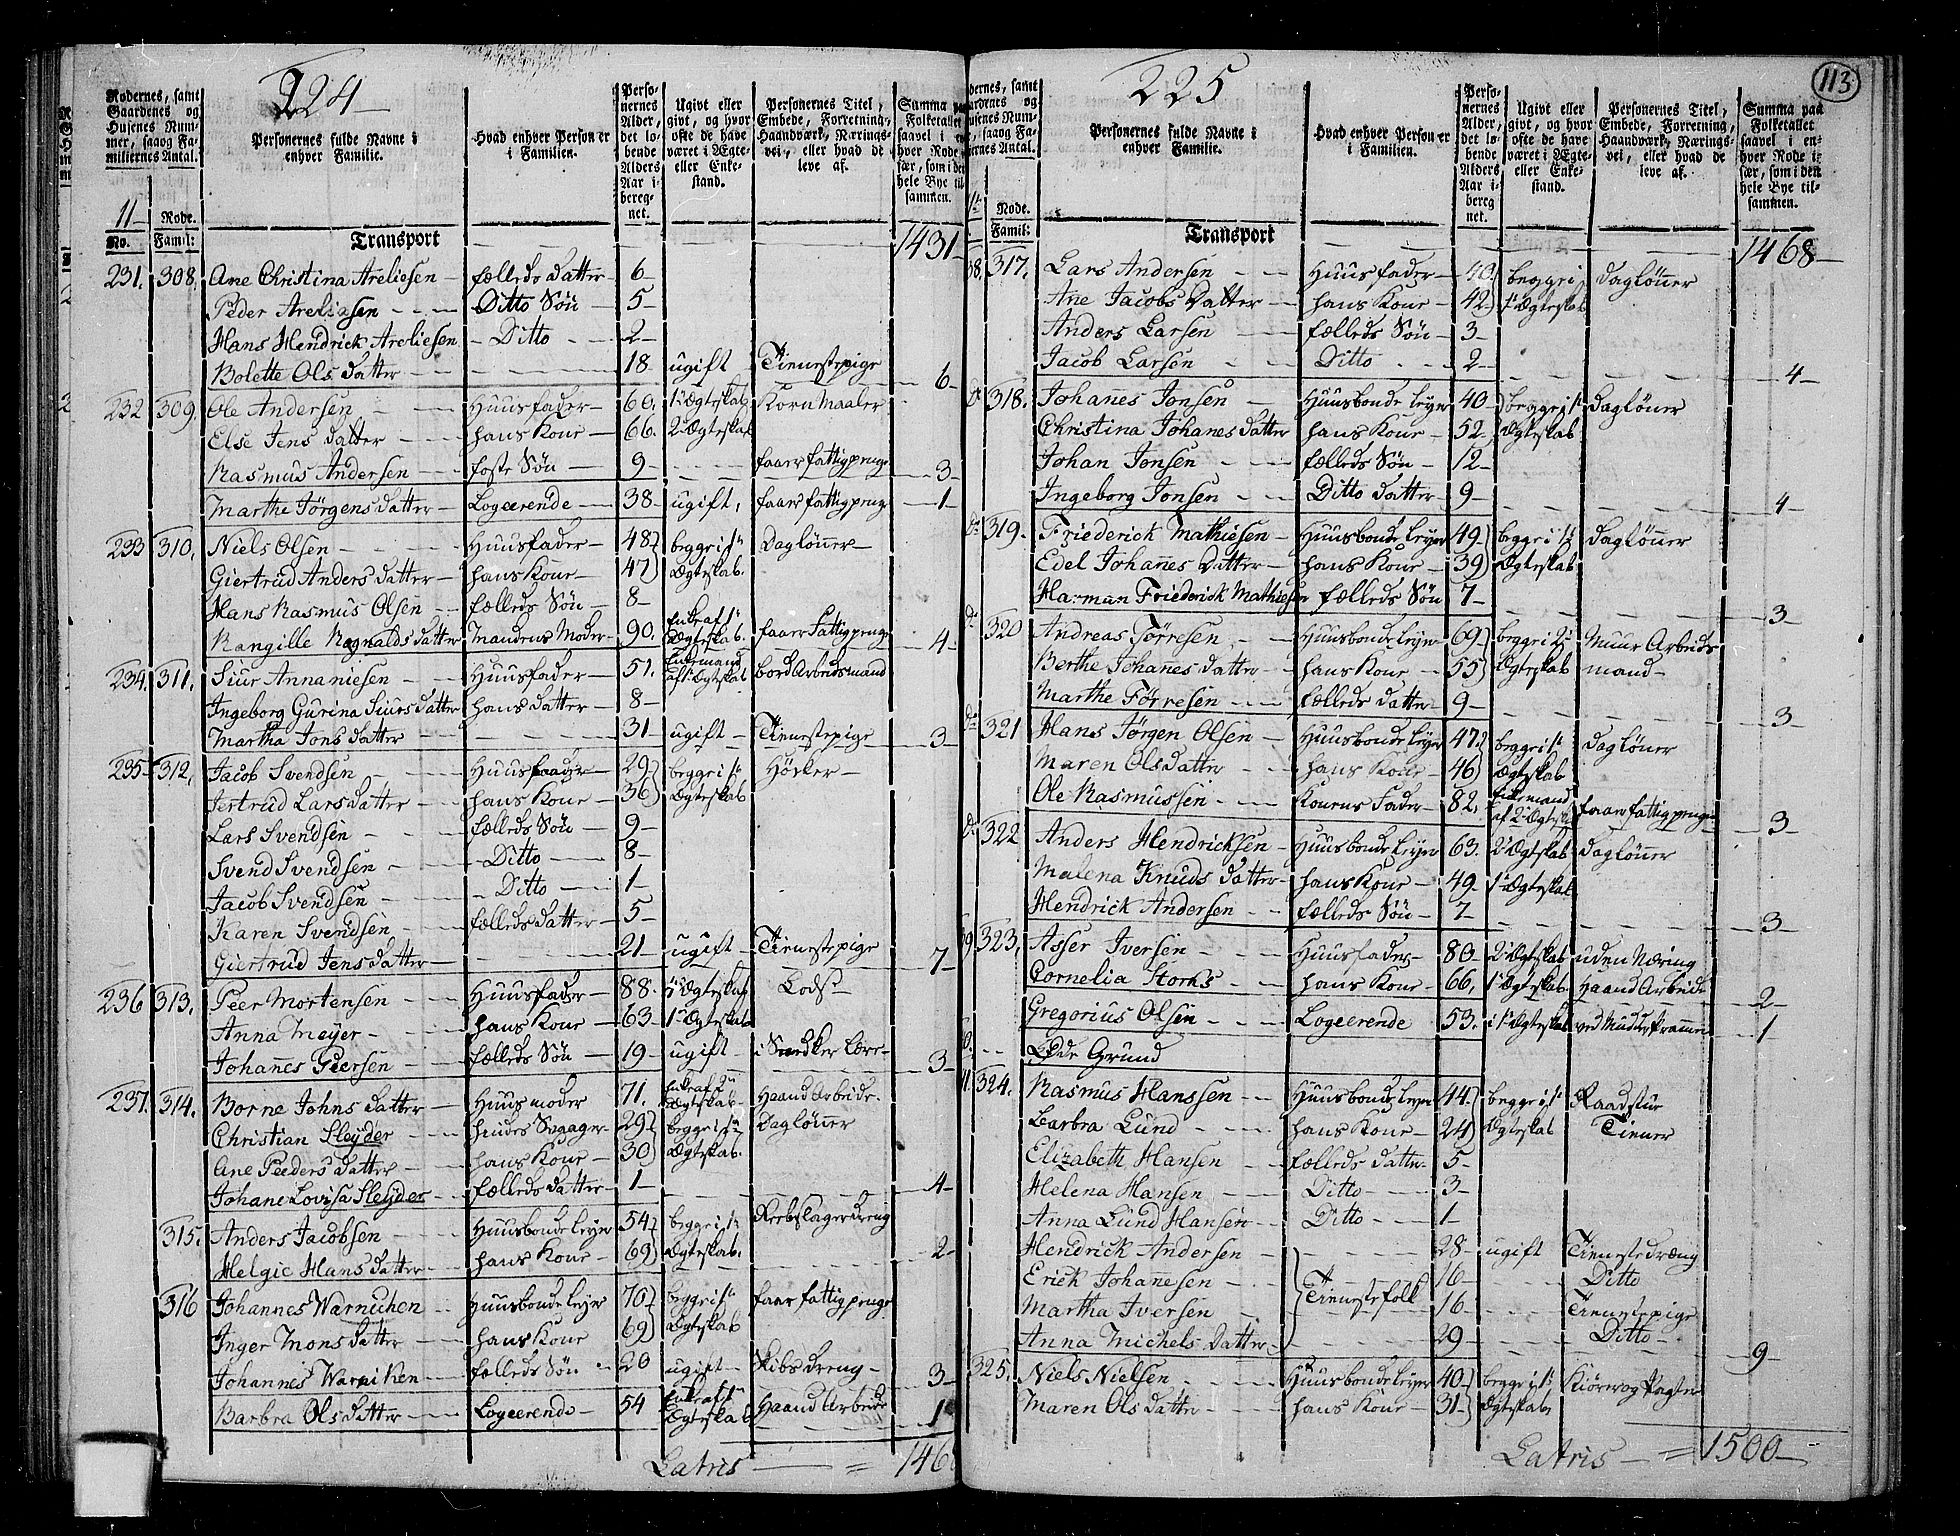 224
Rodernes, samt Gaardenes og Husenes Nummer, saaog Familiernes Antal.
Personernes fulde Navne i enhver Familie.
Hvad enhver Person er i Familien.
Personernes Alder, det løbende Alders Aar iberegnet.
Ugivt eller givt, og hvor ofte de have været i Ægte- eller Enkestand.
Personernes Titel, Embede, Forretning, Haandværk, Næringsvei, eller hvad de leve af.
Summa paa Folketallet saavel i enhver Rode især, som i den hele Bye tilsammen.
11 Rode.
No. Famil:
Transport 1431
231. 308. Ane Christina Areliesen fælleds Datter 6
Peder Areliasen Ditto Søn 5
Hans Hendrick Areliesen Ditto 2
Bolette Ols datter 18 ugift Tienestepige 6
232 309. Ole Andersen Huusfader 60. 1te Ægteskab KornMaaler
Else Jens datter hans Kone 66. 2 Ægteskab
Rasmus Andersen foste Søn 9 faaer fattigpenge 3
Marthe Jørgens datter Logeerende 38 ugift, faaer fattigpenge 1
233 310. Niels Olsen Huusfader 48 begge i 1te Dagløner
Giertrud Anders datter hans Kone 47 Ægteskab.
Hans Rasmus Olsen fælleds Søn 8
Rangille Ragnalds datter Mandens Moder 90. Enke af 1te Ægteskab. faaer Fattigpenge 4
234. 311. Siur Annaniesen Huusfader 51. Enkemand af 1 Ægteskab bord Arbeidsmand
Ingeborg Gurina Siursdatter hans datter 8
Martha Jons datter 31 ugift Tienestepige 3
235 312. Jacob Svendsen Huusfaader 29 begge i 1te Høcker
Jertrud Lars datter hans Kone 36 Ægteskab
Lars Svendsen fælleds Søn 9
Svend Svendsen Ditto 8
Jacob Svendsen Ditto 1
Karen Svendsen fælleds datter 5
Giertrud Jens datter 21 ugift Tienestepige 7
236 313. Peer Mortensen Huusfader 88. Ægteskab Lods
Anna Meyer hans Kone 63 1te Ægteskab
Johannes Peersen fælleds Søn 19 ugift i Snedker Lære 3
237. 314. Borne Johns datter Huusmoder 71. Enke af Ægteskab Haand Arbeide
Christian Sleyder hendes Svoger 29 begge i 1te Dagløner
Ane Peeders datter hans Kone 30 Ægteskab.
Johane Lovisa Sleyder fælleds datter 1 4
315. Anders Jacobsen Huusbonde leyer 54 begge i 1te Reebslagerdreng
Helgie Hans datter hans Kone 69 Ægteskab. 2
316 Johannes Warnichen Huusbonde leyer 70 begge i 1te faaer fattigpenge
Inger Mons datter hans Kone 69 Ægteskab
Johannes Warniken fælleds Søn 20 ugift Skibsdreng 3
Barbra Ols datter Logeerende 54 Enke af 1te Ægteskab Haand Arbeide 1
Latris = 146
113
225
Personernes fulde Navne i enhver Familie.
Hvad enhver Person er i Familien.
Personernes Alder, det løbende Alders Aar iberegnet.
Ugivt eller givt, og hvor ofte de have været i Ægte- eller Enkestand.
Personernes Titel, Embede, Forretning, Haandværk, Næringsvei, eller hvad de leve af.
Summa paa Folketallet saavel i enhver Rode især, som i den hele Bye tilsammen.
Rode.
Famil:
Transport 1468
38. 317. Lars Andersen Huusfader 40 begge i Dagløner
Ane Jacobs Datter hans Kone 42 1te Ægteskab
Anders Larsen fælleds Søn 3
Jacob Larsen Ditto 2 4
do 318. Johanes Jonsen Huusbonde leyer 40 begge i 1te Dagløner
Christina Johanes datter hans Kone 52 Ægteskab
Johan Jonsen fælleds Søn 12
Ingeborg Jonsen Ditto datter 9 4
do 319. Friederick Mathiesen Huusbonde leyer 49 begge i 1te Dagløner
Edel Johannes Datter hans Kone 39 Ægteskab
Harman Friederick Mathiesen fælleds Søn 7 3
do 320 Andreas Tørresen Huusbonde leyer 69 begge i 2 Muur Arbeids
Berthe Johanes datter hans Kone 55 Ægteskab mand
Marthe Tørresen fælleds datter 9 3
do 321 Hans Jørgen Olsen Huusbonde leyer 47 begge i 1te Dagløner
Maren Olsdatter hans Kone 46 Ægteskab
Ole Rasmussen Konens Fader 82. Enkemand af 2 Ægteskab faaer fattigpenge 3
do 322 Anders Hendricksen Huusbonde leyer 63. 2 Ægteskab Dagløner
Malena Knuds datter hans Kone 49 1te Ægteskab
Hendrick Andersen fælleds Søn 7 3
323. Asser Iversen Huusfader 80 2 Ægteskab uden Næring
Cornelia Storks hans Kone 66, 1te Ægteskab Haand Arbeide 2
Gregorius Olsen Logeerende 53. i 1te Ægteskab ved Mudderprammen 1
Øde Grund
324. Rasmus Hanssen Huusbonde leyer 44 begge i 1te Raadstue
Barbra Lund hans Kone 24 Ægteskab Tiener
Elizabeth Hansen fælleds datter 5
Helena Hansen Ditto 3
Anna Lund Hansen Ditto 1
Hendrick Andersen 28 ugift Tienestedræng
Erick Johannesen 16 Ditto
Tienestefolk
Martha Iversen 16 Tienestepige
Anna Michels datter 29 Ditto 9
325. Niels Nielsen Huusbonde leyer 40 begge i 1te
Maren Ols datter hans Kone 31 Ægteskab
Latris = 1500